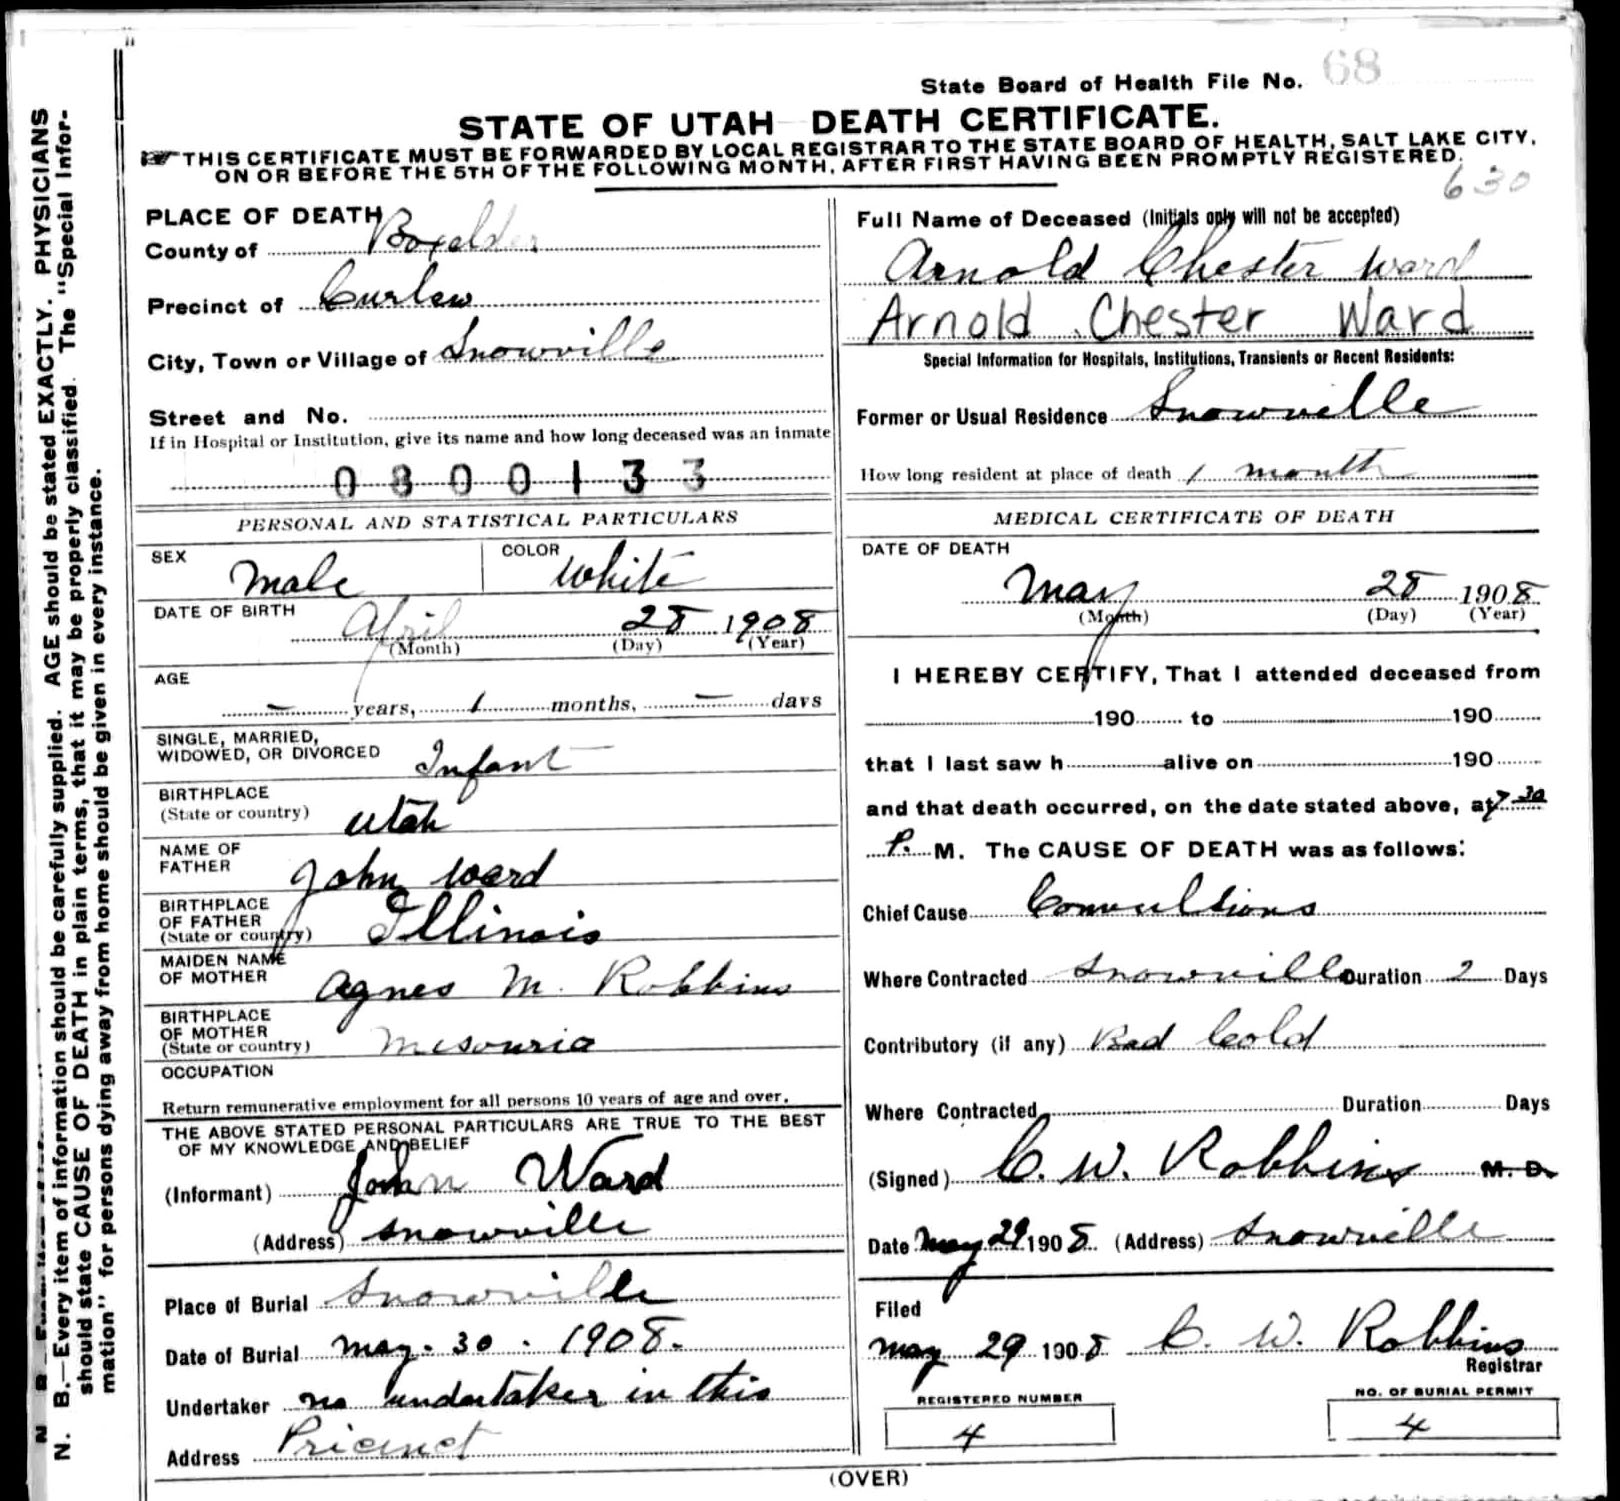 State Board of Health File No. 68
STATE OF UTAH DEATH CERTIFICATE.
THIS CERTIFICATE MUST BE FORWARDED BY LOCAL REGISTRAR TO THE STATE BOARD OF HEALTH, SALT LAKE CITY,
ON OR BEFORE THE 5TH OF THE FOLLOWING MONTH, AFTER FIRST HAVING BEEN PROMPTLY REGISTERED.
630
N. B.—Every item of information should be carefully supplied. AGE should be stated EXACTLY. PHYSICIANS
should state CAUSE OF DEATH in plain terms, that it may be properly classified. The "Special Infor-
mation" for persons dying away from home should be given in every instance.
PLACE OF DEATH
County of Boxelder
Precinct of Curlew
City, Town or Village of Snowville
Street and No.
If in Hospital or Institution, give its name and how long deceased was an inmate
0800133
PERSONAL AND STATISTICAL PARTICULARS
SEX Male
COLOR White
DATE OF BIRTH
April 28 1908
(Month) (Day) (Year)
AGE
— years, 1 months, — days
SINGLE, MARRIED,
WIDOWED, OR DIVORCED Infant
BIRTHPLACE
(State or country) Utah
NAME OF
FATHER John Ward
BIRTHPLACE
OF FATHER
(State or country) Illinois
MAIDEN NAME
OF MOTHER Agnes M. Robbins
BIRTHPLACE
OF MOTHER
(State or country) Misouria
OCCUPATION
Return remunerative employment for all persons 10 years of age and over.
THE ABOVE STATED PERSONAL PARTICULARS ARE TRUE TO THE BEST
OF MY KNOWLEDGE AND BELIEF
(Informant) John Ward
(Address) Snowville
Place of Burial Snowville
Date of Burial may. 30. 1908.
Undertaker no undertaker in this
Address Pricinct
Full Name of Deceased (Initials only will not be accepted)
Arnold Chester Ward
Arnold Chester Ward
Special Information for Hospitals, Institutions, Transients or Recent Residents:
Former or Usual Residence Snowville
How long resident at place of death 1 month
MEDICAL CERTIFICATE OF DEATH
DATE OF DEATH
May 28 1908
(Month) (Day) (Year)
I HEREBY CERTIFY, That I attended deceased from
190 to 190
that I last saw h alive on 190
and that death occurred, on the date stated above, at 7 30
P. M. The CAUSE OF DEATH was as follows:
Chief Cause Convulsions
Where Contracted Snowville Duration 2 Days
Contributory (if any) Bad Cold
Where Contracted Duration Days
(Signed) C. W. Robbins M. D.
Date May 29 1908 (Address) Snowville
Filed
may 29 1908 C. W. Robbins
Registrar
REGISTERED NUMBER
4
NO. OF BURIAL PERMIT
4
(OVER)